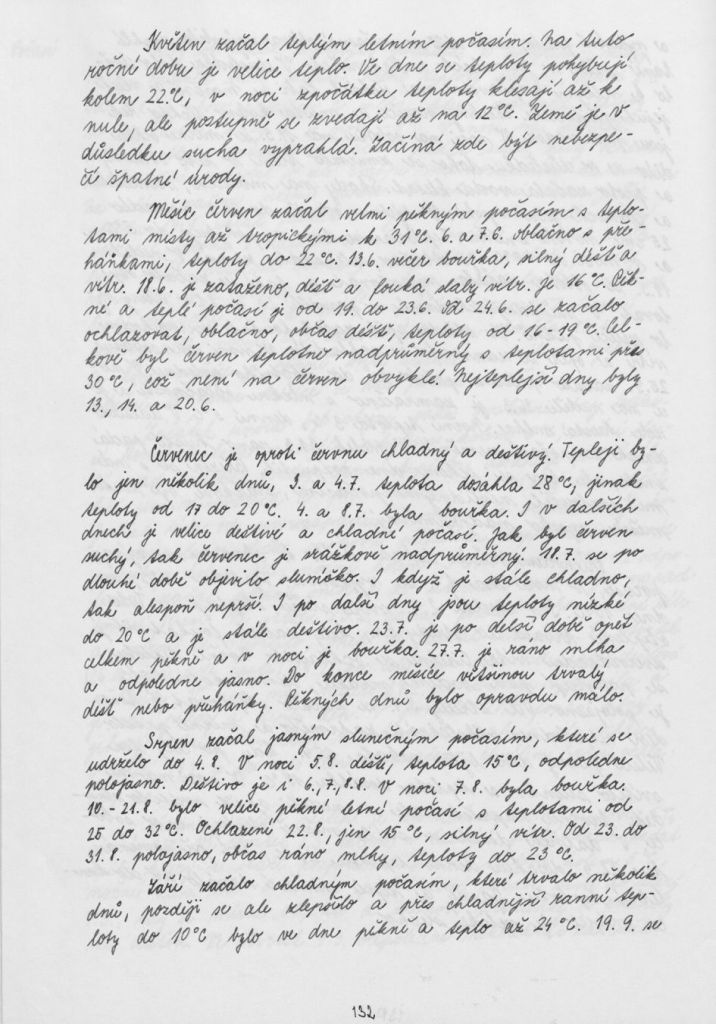 Květen začal teplým letním počasím. Na tuto
roční dobu je velice teplo. Ve dne se teploty pohybují
kolem 22°C, v noci zpočátku teploty klesají až k
nule, ale postupně se zvedají až na 12°C. Země je v
důsledku sucha vyprahlá. Začíná zde být nebezpe-
čí špatné úrody.
Měsíc červen začal velmi pěkným počasím s teplo-
tami místy až tropickými k 31°C. 6. a 7.6. oblačno s pře-
háňkami, teploty do 22°C. 13.6. večer bouřka, silný déšť a
vítr. 18.6. je zataženo, déšť a fouká slabý vítr. Je 16°C. Pěk-
né a teplé počasí je od 19. do 23.6. Od 24.6. se začalo
ochlazovat, oblačno, občas déšť, teploty od 16-19°C. Cel-
kově byl červen teplotně nadprůměrný s teplotami přes
30°C, což není na červen obvyklé. Nejteplejší dny byly
13., 14. a 20.6.
Červenec je oproti červnu chladný a deštivý. Tepleji by-
lo jen několik dnů, 3. a 4.7. teplota dosáhla 28°C, jinak
teploty od 17 do 20°C. 4. a 8.7. byla bouřka. I v dalších
dnech je velice deštivé a chladné počasí. Jak byl červen
suchý, tak červenec je srážkově nadprůměrný. 18.7. se po
dlouhé době objevilo sluníčko. I když je stále chladno,
tak alespoň neprší. I po další dny jsou teploty nízké
do 20°C a je stále deštivo. 23.7. je po delší době opět
celkem pěkně a v noci je bouřka. 27.7. je ráno mlha
a odpoledne jasno. Do konce měsíce většinou trvalý
déšť nebo přeháňky. Pěkných dnů bylo opravdu málo.
Srpen začal jasným slunečným počasím, které se
udrželo do 4.8. V noci 5.8. déšť, teplota 15°C, odpoledne
polojasno. Deštivo je i 6., 7., 8.8. V noci 7.8. byla bouřka.
10.-21.8. bylo velice pěkné letní počasí s teplotami od
25 do 32°C. Ochlazení 22.8., jen 15°C, silný vítr. Od 23. do
31.8. polojasno, občas ráno mlhy, teploty do 23°C.
Září začalo chladným počasím, které trvalo několik
dnů, později se ale zlepšilo a přes chladnější ranní tep-
loty do 10°C bylo ve dne pěkně a teplo až 24°C. 19.9. se
132